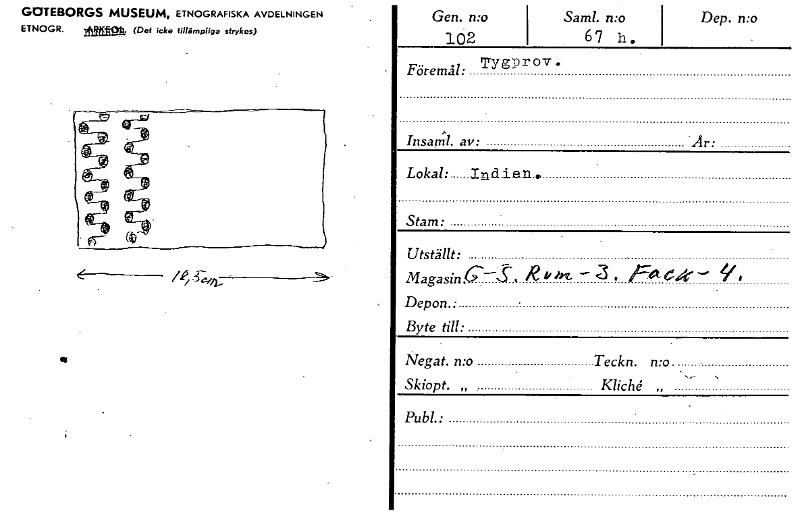 GÖTEBORGS MUSEUM, ETNOGRAFISKA AVDELNINGEN
ETNOGR. ARKEOL. (Det icke tillämpliga strykes)
Gen. n:o Saml. n:o Dep. n:o
102 67 h.
Föremål: Tygprov.
Insaml. av: År:
Lokal: Indien.
Stam:
Utställt:
Magasin: G-5. Rum-3. Fack-4.
Depon.:
Byte till:
Negat. n:o Teckn. n:o
Skiopt. „ Kliché „
Publ.: